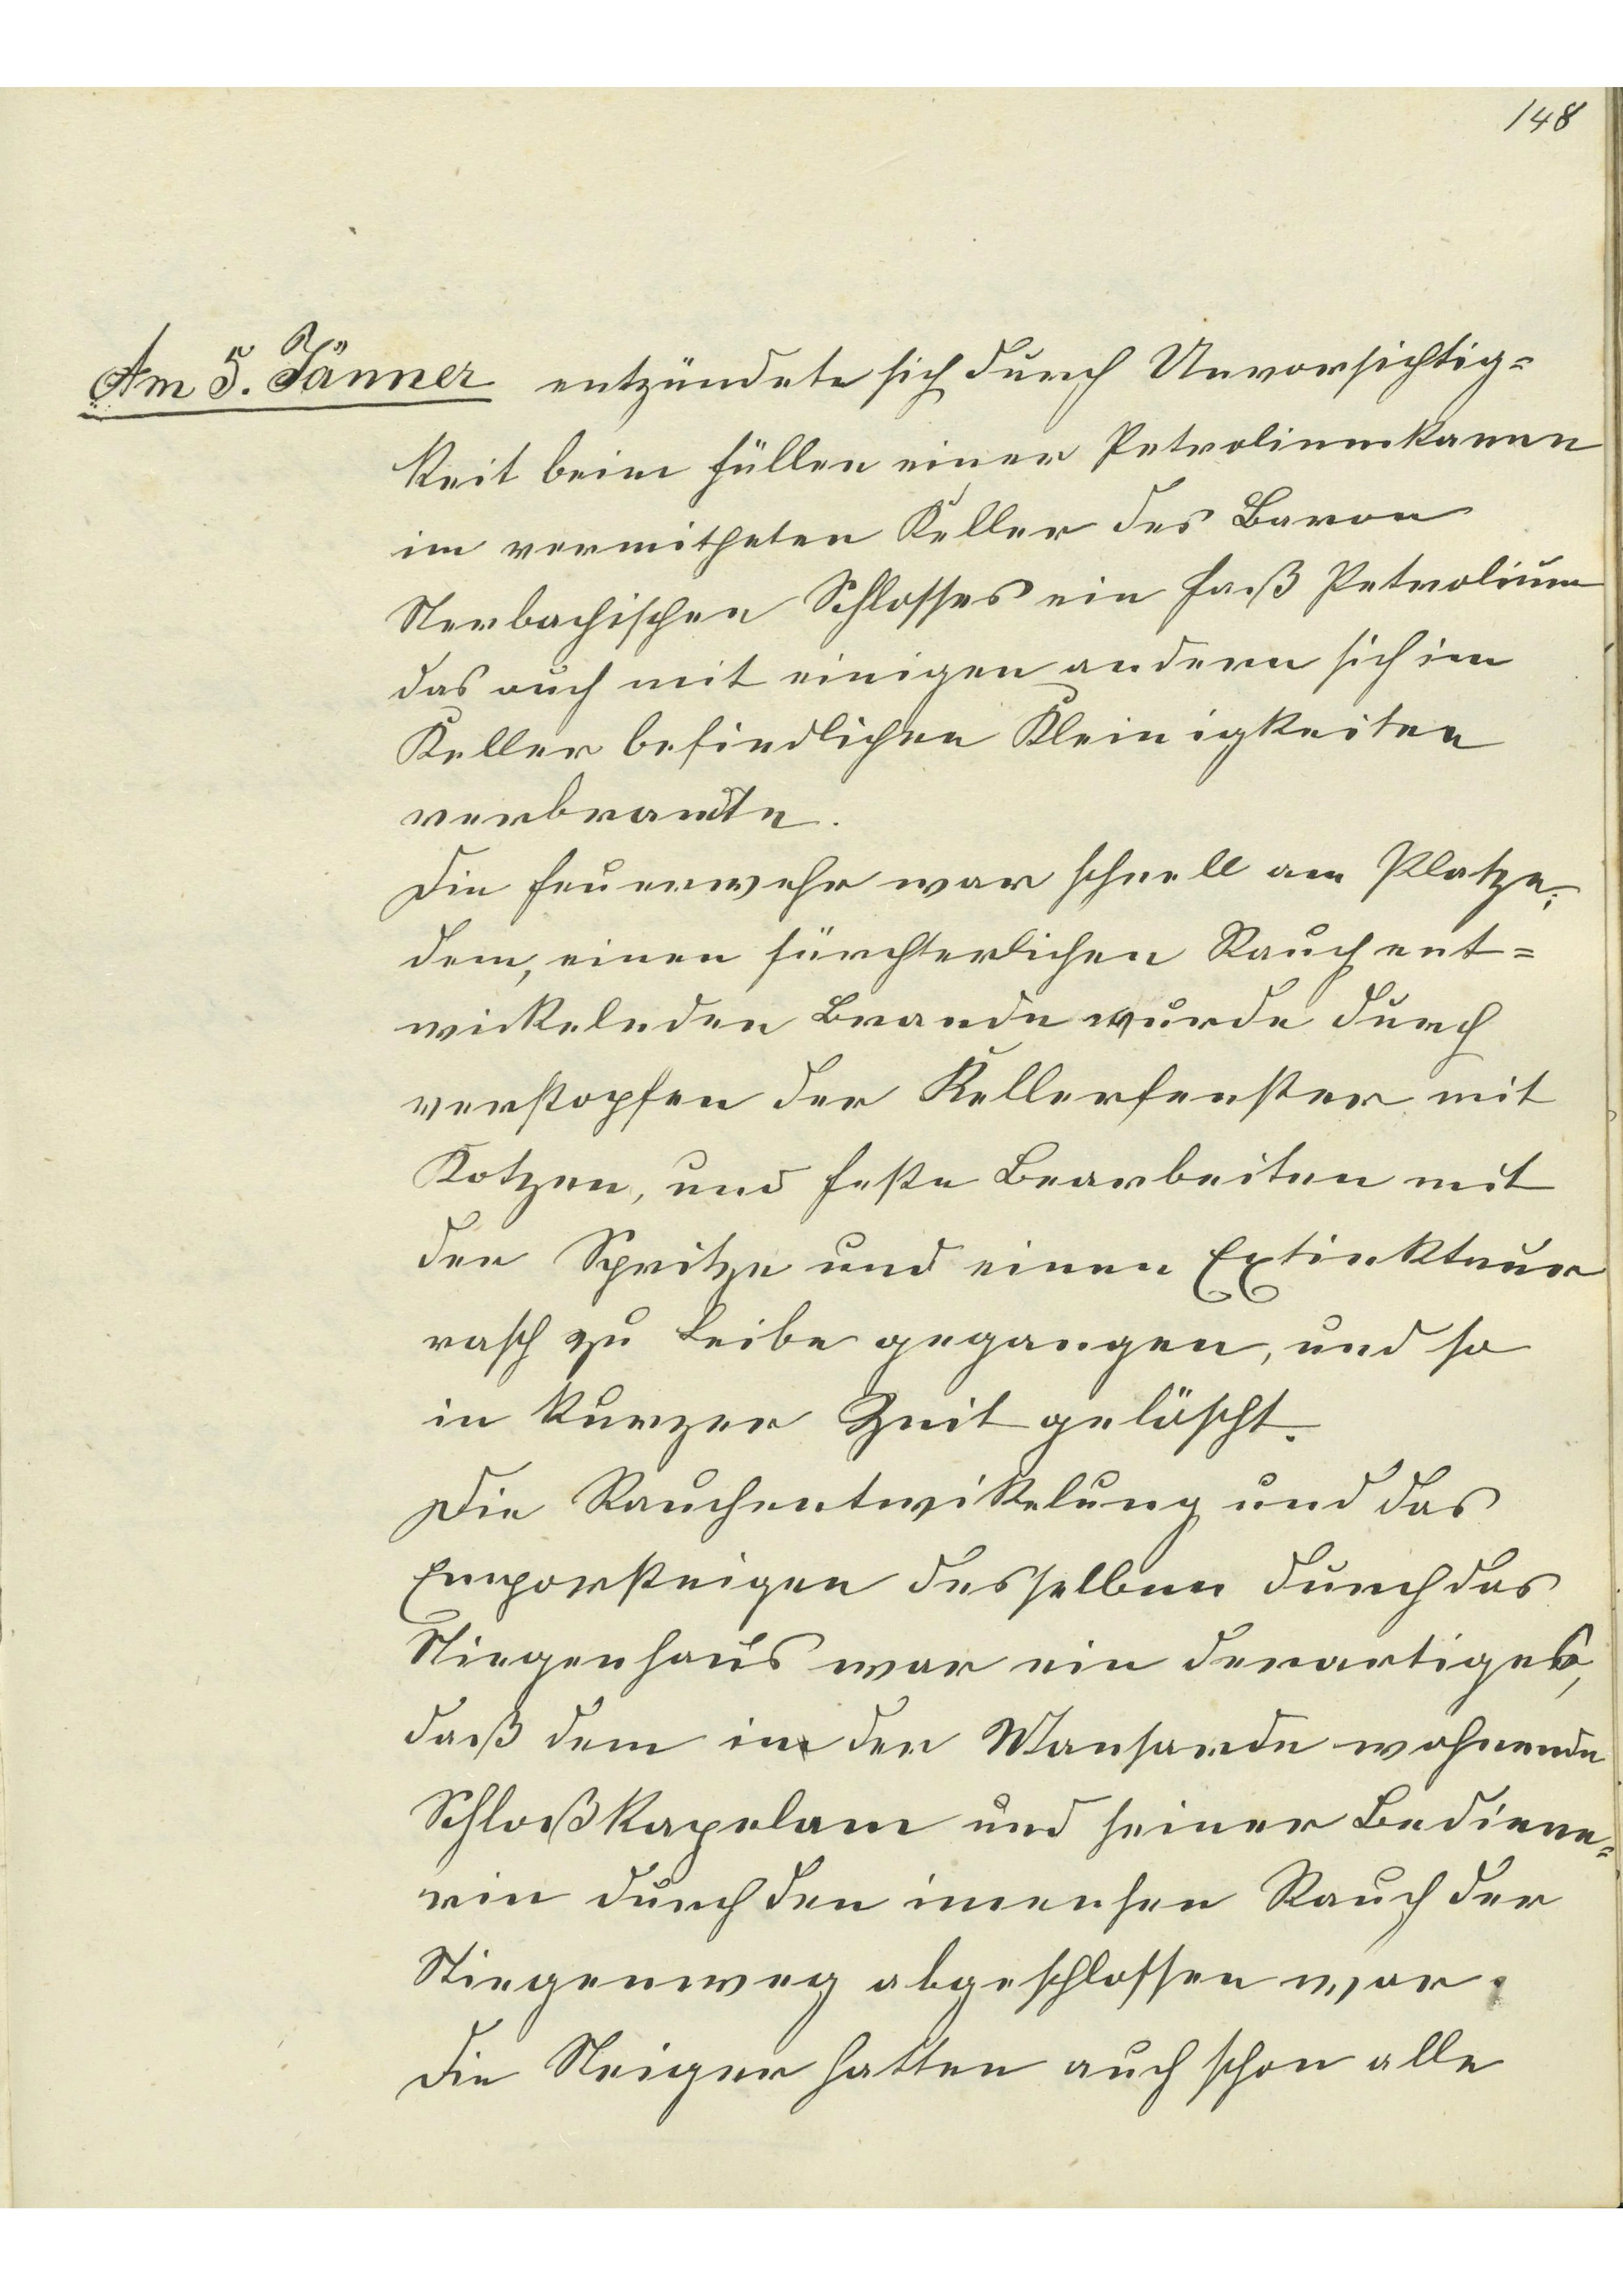 148
Am 5. Jänner entzündete sich durch Unvorsichtig=
keit beim füllen einer Petroliumkanne
im vermitheten Keller des Baron
Sterbachischen Schlosses ein Faß Petrolium
das auch mit einigen andern sich im
Keller befindlichen Kleinigkeiten
verbrannte.
Die Feuerwehr war schnell am Platze;
dem, einen fürchterlichen Rauch ent=
wickelnden Brande wurde durch
verstopfen der Kellerfenster mit
Kotzen, und feste Bearbeiten mit
der Spritze und einen Extinkteur
rasch zu Leibe gegangen, und so
in kurzer Zeit gelöscht.
Die Rauchentwikelung und das
Emporsteigen desselben durch das
Stiegenhaus war ein derartiges,
daß dem in der Mansarde wohnende
Schloßkapelam und seiner Bediene=
rin durch den imensen Rauch der
Stiegenweg abgeschlossen war.
Die Steiger hatten auch schon alle